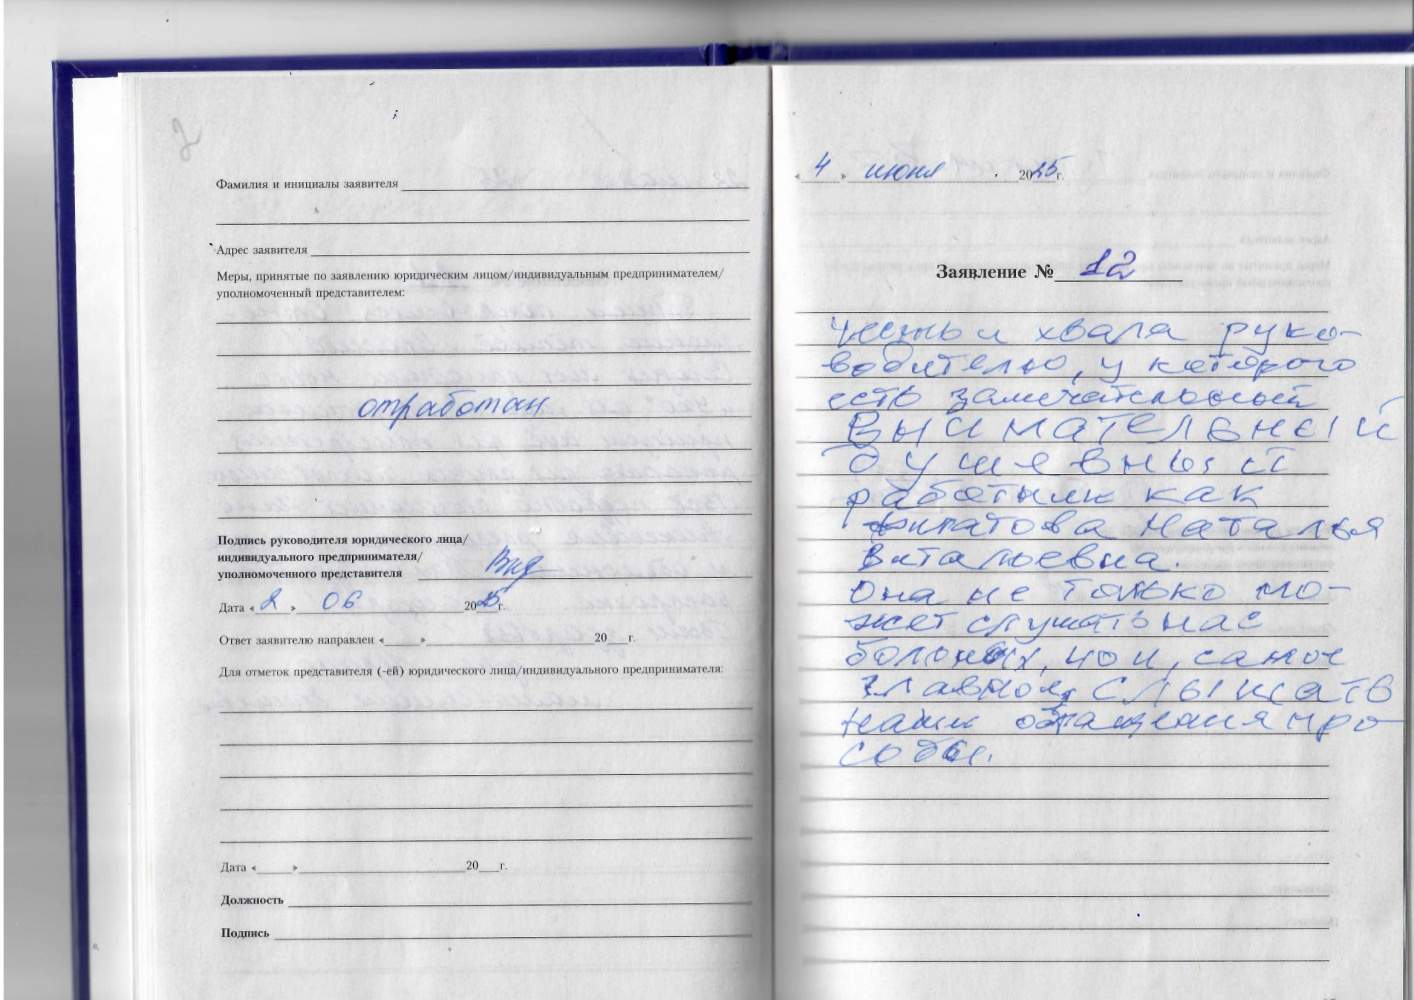 2
Фамилия и инициалы заявителя
Адрес заявителя
Меры, принятые по заявлению юридическим лицом/индивидуальным предпринимателем/
уполномоченный представителем:
отработан
Подпись руководителя юридического лица/
индивидуального предпринимателя/
уполномоченного представителя
Дата « 2 » 06 2025г.
Ответ заявителю направлен «____» ____ 20__г.
Для отметок представителя (-ей) юридического лица/индивидуального предпринимателя:
Дата «____» ____ 20__г.
Должность
Подпись
« 4 » июня 2025г.
Заявление № 12
Честь и хвала руко-
водителю, у которого
есть замечательный
Внимательный
Душевный
работник как
Филатова Наталья
Витальевна.
Она не только мо-
жет слушать нас
больных, но и, самое
главное, слышать
наши обращения про
собы.